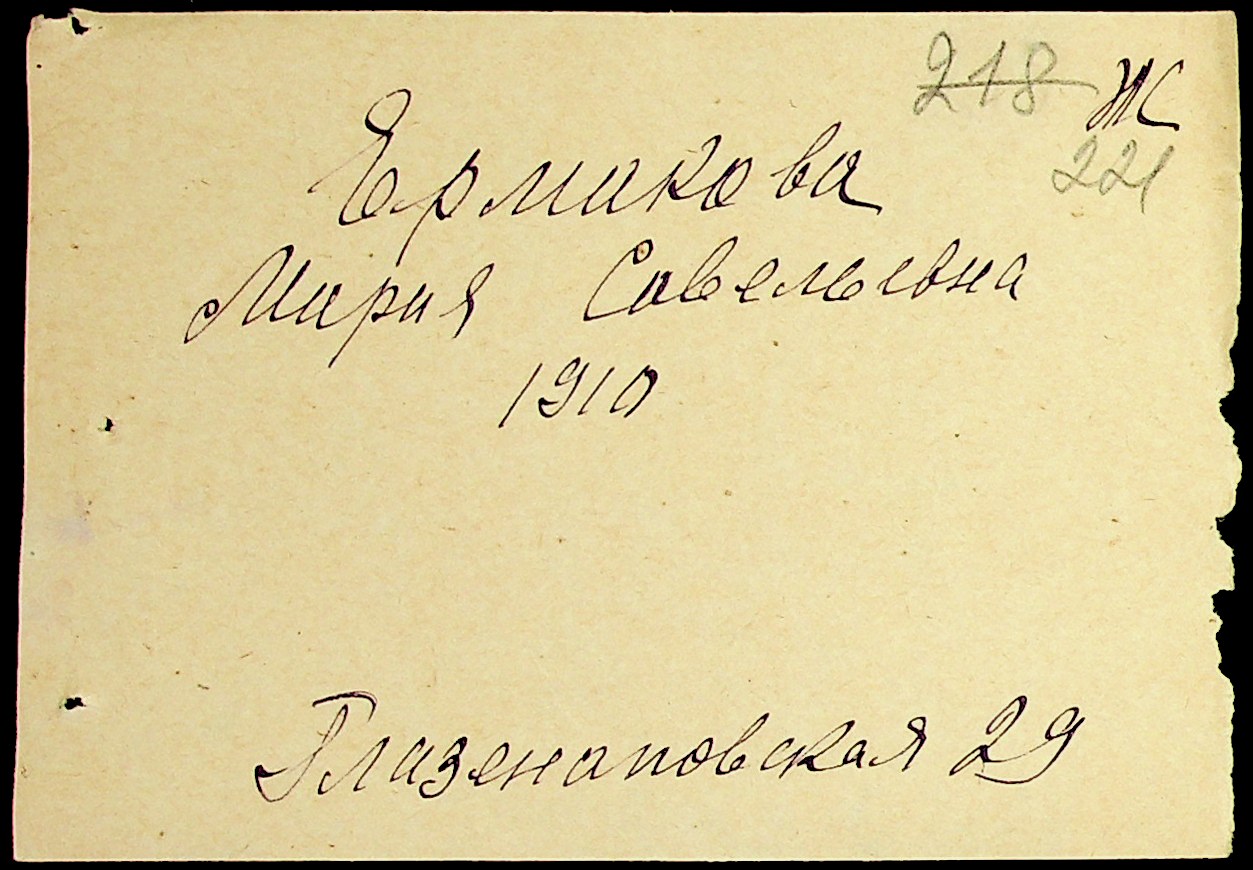 218 Ж
221
Ермакова
Мария Савельевна
1910
Глазенаповская 29